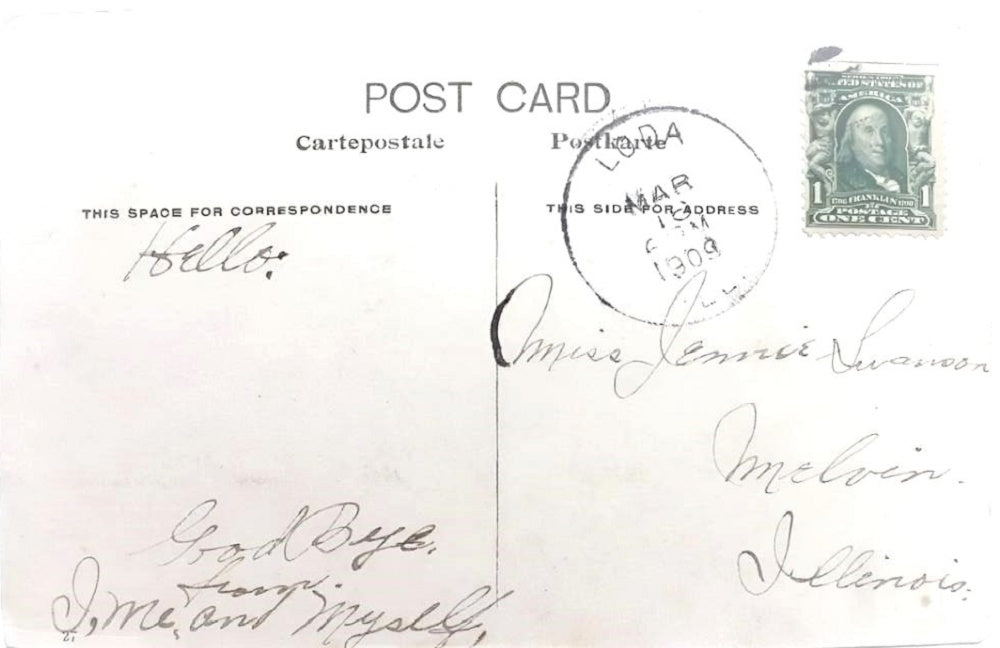 POST CARD
Cartepostale
Postkarte
THIS SPACE FOR CORRESPONDENCE
THIS SIDE FOR ADDRESS
LODA
MAR
1909
ILL
SERIES 1902
UNITED STATES OF
AMERICA
1706 FRANKLIN 1790
1 1
POSTAGE
ONE CENT
Hello:
Good Bye.
from.
I, Me, and Myself,
Miss Jennie Swanson
Melvin.
Illinois.